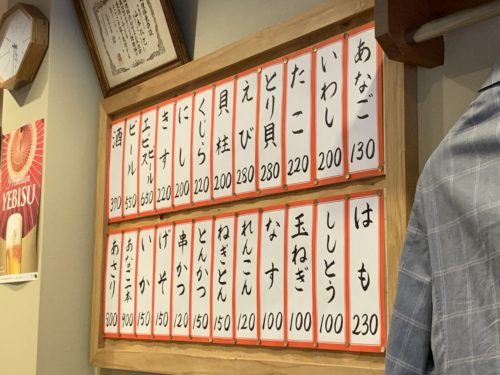 あなご 130
いわし 200
たこ 220
とり貝 280
えび 280
貝柱 200
くじら 220
にし 200
きす 220
エビスビール 650
ビール 550
酒 390
はも 230
ししとう 100
玉ねぎ 100
なす 100
れんこん 120
ねぎとん 150
とんかつ 150
串かつ 120
げそ 150
いか 150
あなご一本 400
あさり 300
YEBISU